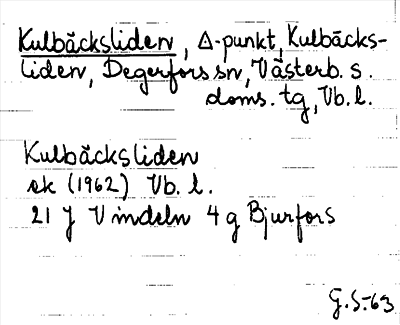 Kulbäcksliden, Δ-punkt, Kulbäcks-
liden, Degerfors sn, Västerb. s.
doms. tg, Vb. l.
Kulbäcksliden
ek (1962) Vb. l.
21 J Vindeln 4 g Bjurfors
G.S-63